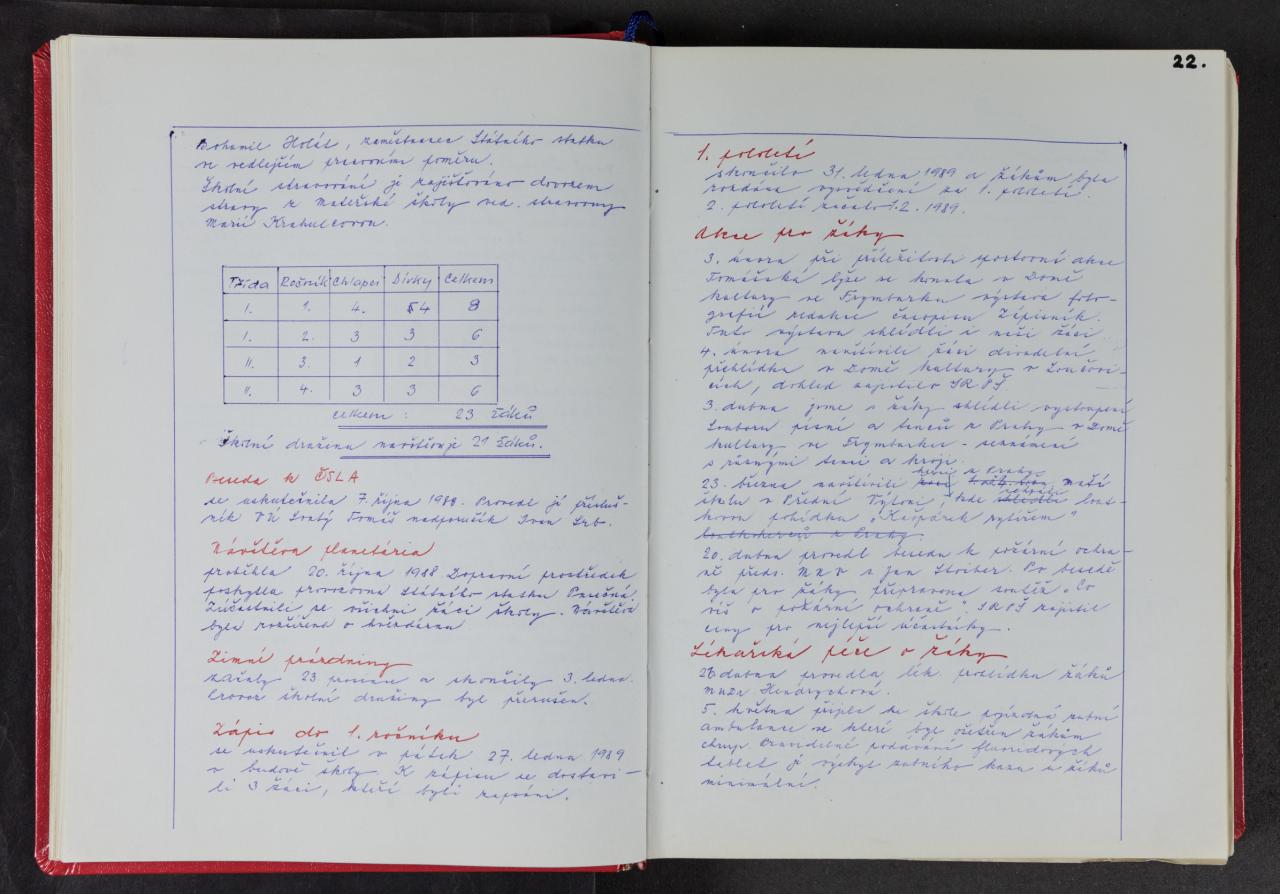 Bohumil Holát, zaměstnanec Státního statku
ve vedlejším pracovním poměru.
Školní stravování je zajišťováno dovozem
stravy z Mateřské školy ved. stravovny
Marií Krahulcovou.
Třída Ročník Chlapci Dívky Celkem
I. 1. 4. 4 8
I. 2. 3 3 6
II. 3. 1 2 3
II. 4. 3 3 6
celkem : 23 žáků
Školní družinu navštěvuje 21 žáků.
Beseda k ČSLA
se uskutečnila 7. října 1988. Provedl ji přísluš-
ník VÚ Svatý Tomáš nadporučík Ivan Srb.
Návštěva planetária
proběhla 20. října 1988. Dopravní prostředek
poskytla provozovna Státního statku Pasečná.
Zúčastnili se všichni žáci školy. Návštěva
byla rozšířena o hvězdárnu
Zimní prázdniny
začaly 23 prosince a skončily 3. ledna.
Provoz školní družiny byl přerušen.
Zápis do 1. ročníku
se uskutečnil v pátek 27. ledna 1989
v budově školy. K zápisu se dostavi-
li 3 žáci, kteří byli zapsáni.
22.
1. pololetí
skončilo 31. ledna 1989 a žákům bylo
rozdáno vysvědčení za 1. pololetí.
2. pololetí začalo 1.2. 1989.
Akce pro žáky
3. února při příležitosti sportovní akce
Tomášská lyže se konala v Domě
kultury ve Frymburku výstava foto-
grafií redakce časopisu Zápisník.
Tuto výstavu shlédli i naši žáci.
4. února navštívili žáci divadelní
přehlídku v Domě kultury v Loučovi-
cích, dohled zajistilo SRPŠ
3. dubna jsme s žáky shlédli vystoupení
Souboru písní a tanců z Prahy v Domě
kultury ve Frymburku - seznámení
s různými tanci a kroji.
z Prahy
23. března navštívili naší
školu v Přední Výtoni, kde lout-
kovou pohádku "Kašpárek rytířem"
loutkoherců z Prahy.
20. dubna provedl besedu k požární ochra-
ně předs. MNV s Jan Stoiber. Po besedě
byla pro žáky připravena soutěž "Co
víš o požární ochraně". SRPŠ zajistil
ceny pro nejlepší účastníky.
Lékařská péče o žáky
26 dubna provedla lék. prohlídku žáků
MUDr Hendrychová.
5. května přijela ke škole pojízdná zubní
ambulance ve které byl ošetřen žákům
chrup. Pravidelné podávání fluoridových
tablet je výskyt zubního kazu u žáků
minimální.